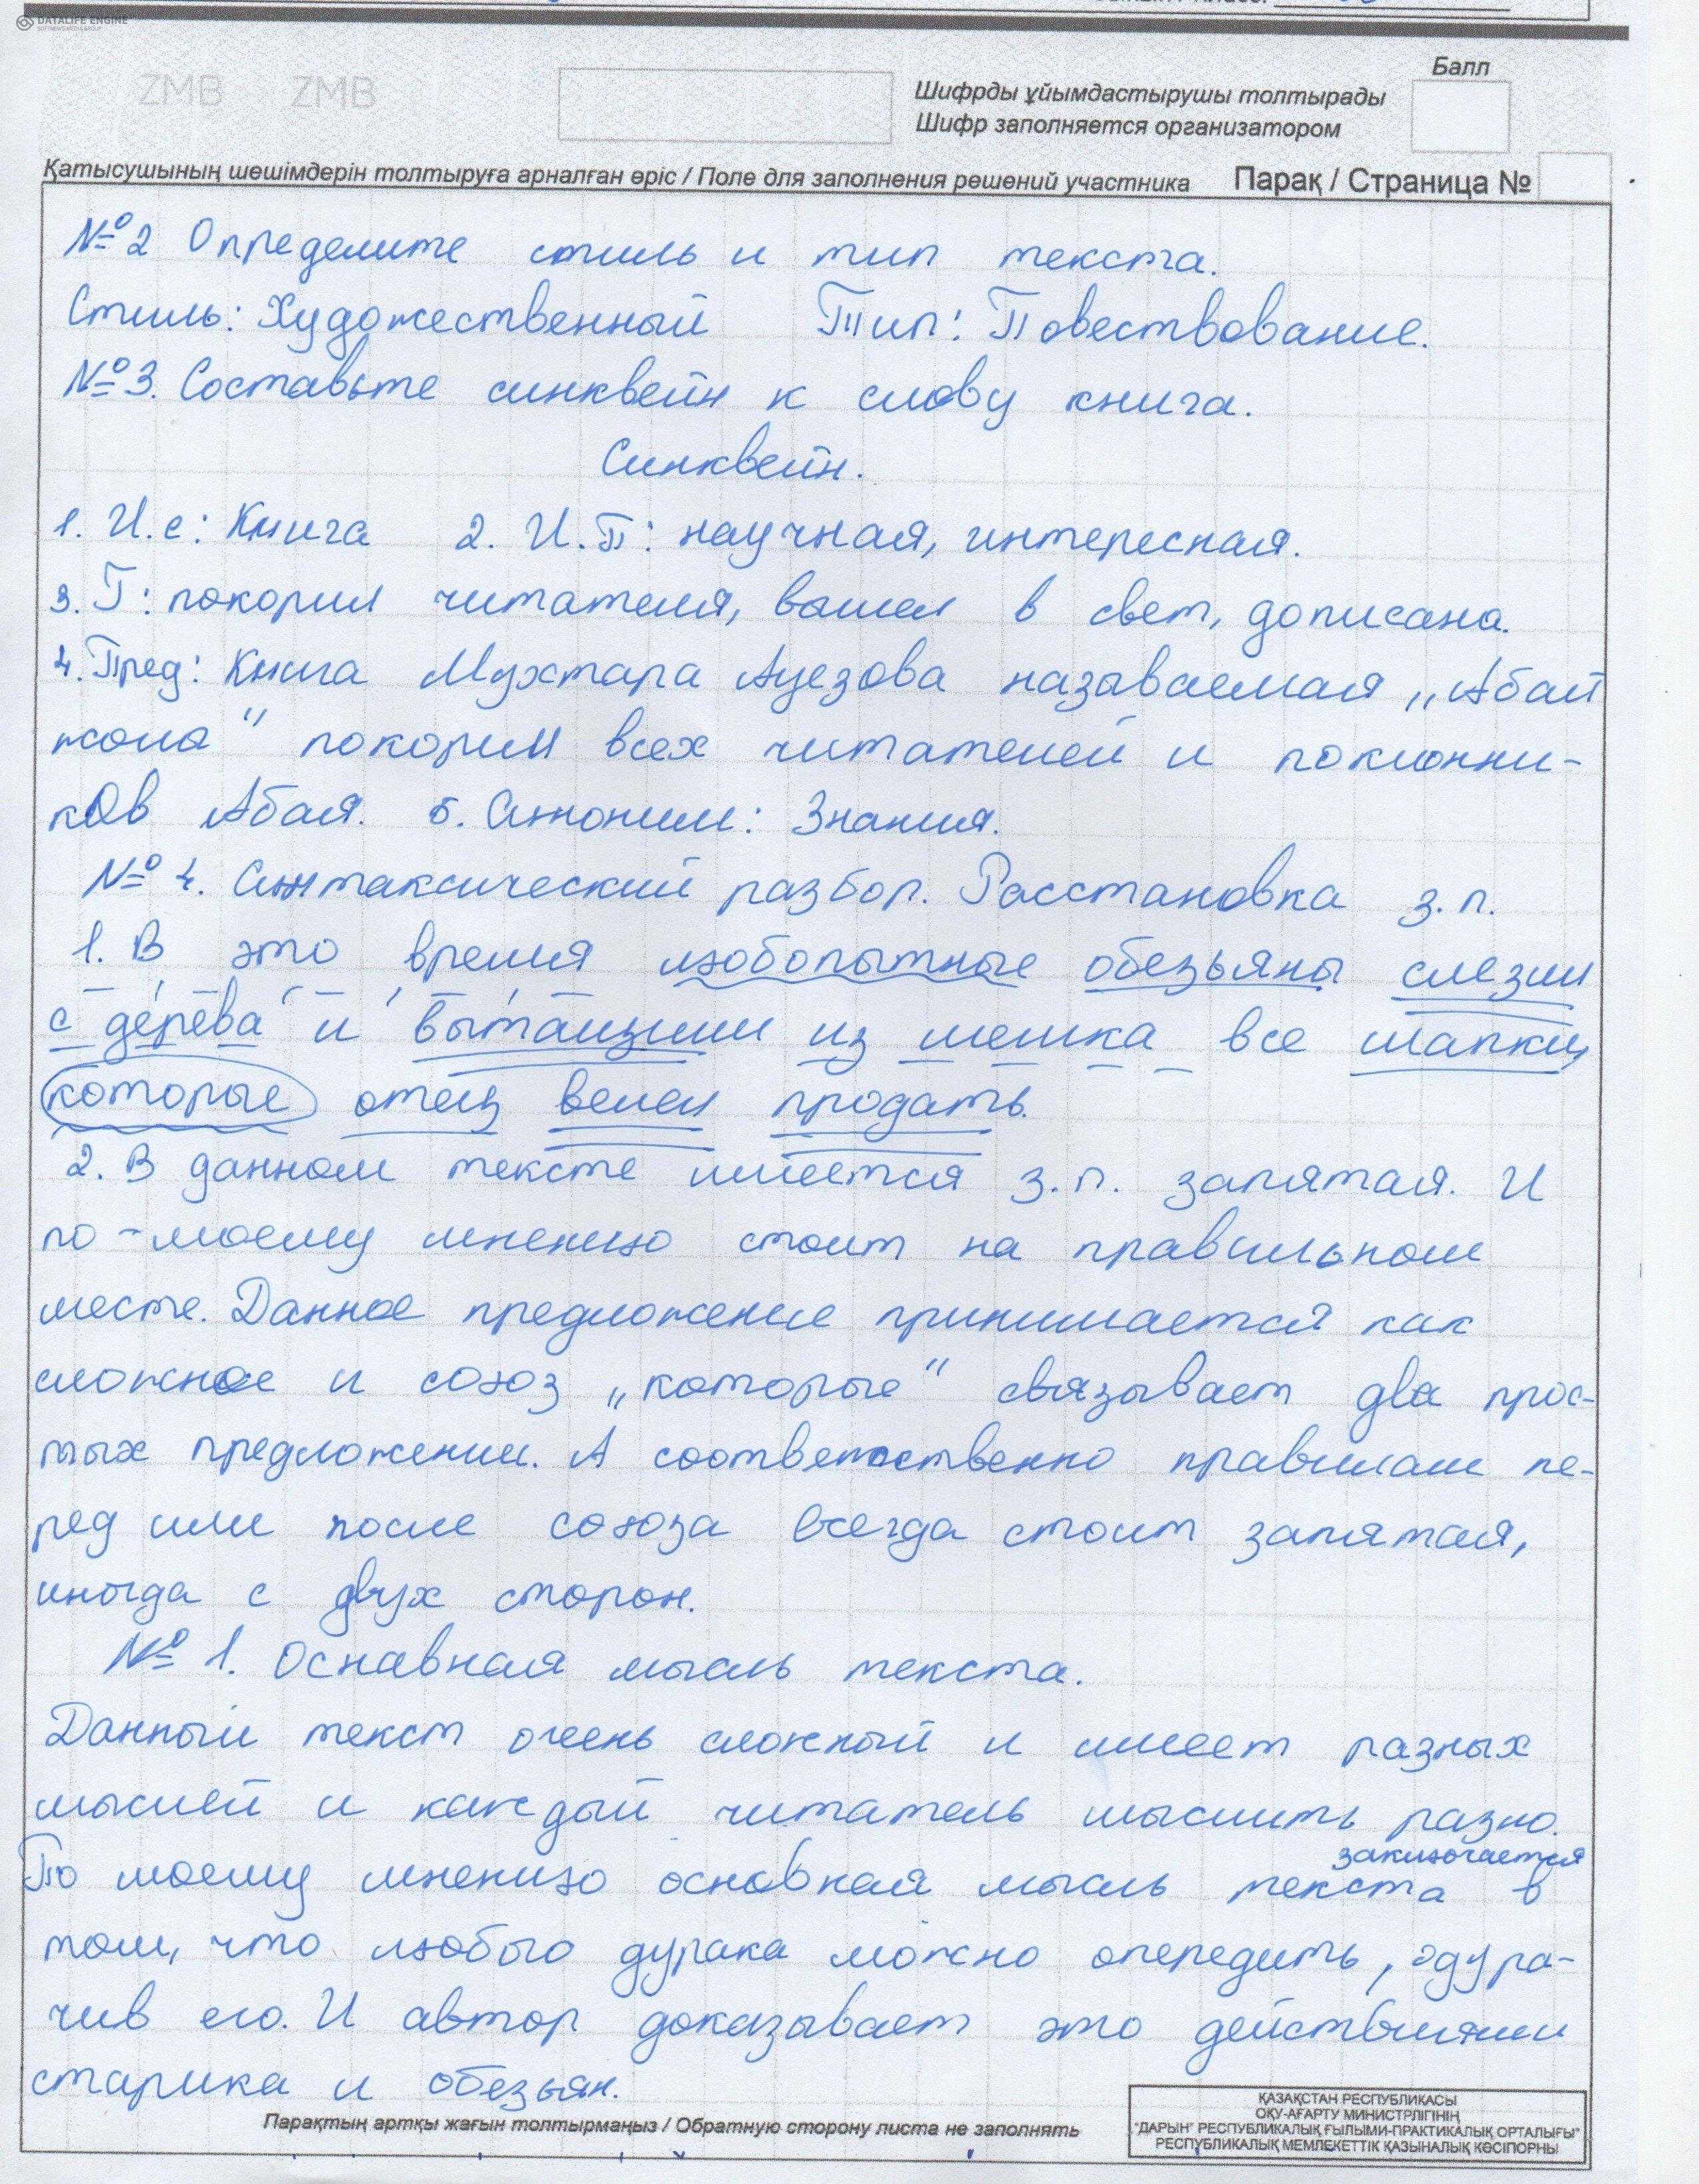 DATALIFE ENGINE
SOFTNEWS MEDIA GROUP
ZMB ZMB
Балл
Шифрды ұйымдастырушы толтырады
Шифр заполняется организатором
Қатысушының шешімдерін толтыруға арналған өріс / Поле для заполнения решений участника Парақ / Страница №
№2 Определите стиль и тип текста.
Стиль: Художественный Тип: Повествование.
№3. Составьте синквейн к слову книга.
Синквейн.
1. И.с: Книга 2. И.П: научная, интересная.
3. Г: покорил читателя, вышел в свет, дописана.
4. Пред: Книга Мухтара Ауезова называемая „Абай
жола" покорил всех читателей и поклонни-
ков Абая. 5. Синоним: Знания.
№ 4. Синтаксический разбор. Расстановка з.п.
1. В это время любопытные обезьяны слезли
с дерева и вытащили из мешка все шапки,
которые отец велел продать.
2. В данном тексте имеется з.п. запятая. И
по-моему мнению стоит на правильном
месте. Данное предложение принимается как
сложное и союз „которые" связывает два прос-
тых предложении. А соответственно правилам пе-
ред или после союза всегда стоит запятая,
иногда с двух сторон.
№ 1. Оснавная мысль текста.
Данный текст очень сложный и имеет разных
мыслей и каждый читатель мыслить разно.
заключается
По моему мнению основная мысль текста в
том, что любого дурака можно опередить, одура-
чив его. И автор доказывает это действиями
старика и обезьян.
Парақтың артқы жағын толтырмаңыз / Обратную сторону листа не заполнять
ҚАЗАҚСТАН РЕСПУБЛИКАСЫ
ОҚУ-АҒАРТУ МИНИСТРЛІГІНІҢ
"ДАРЫН" РЕСПУБЛИКАЛЫҚ ҒЫЛЫМИ-ПРАКТИКАЛЫҚ ОРТАЛЫҒЫ"
РЕСПУБЛИКАЛЫҚ МЕМЛЕКЕТТІК ҚАЗЫНАЛЫҚ КӘСІПОРНЫ